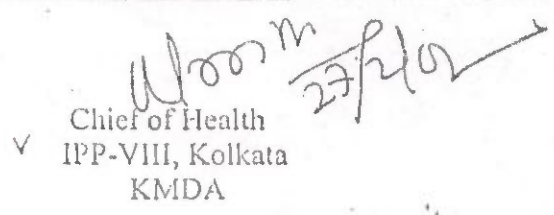 27/2/02
Chief of Health
IPP-VIII, Kolkata
KMDA